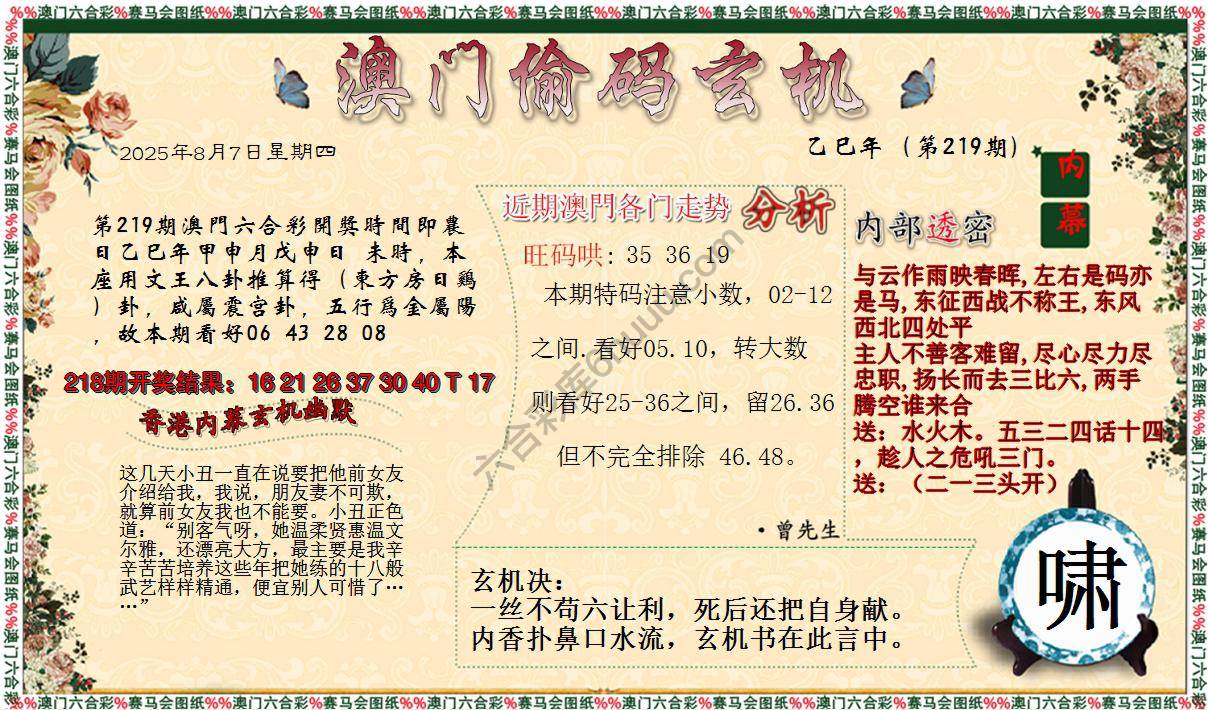 %%澳门六合彩%赛马会图纸%%澳门六合彩%赛马会图纸%%澳门六合彩%赛马会图纸%%澳门六合彩%赛马会图纸%%澳门六合彩%赛马会图纸%%澳门六合彩%赛马会图纸%%
澳门偷码玄机
2025年8月7日星期四
乙巳年（第219期）
内
幕
第219期澳門六合彩開獎時間即農
日乙巳年甲申月戊申日 未時，本
座用文王八卦推算得（東方房日鷄
）卦，咸屬震宫卦，五行爲金屬陽
，故本期看好06 43 28 08
218期开奖结果：16 21 26 37 30 40 T 17
香港内幕玄机幽默
这几天小丑一直在说要把他前女友
介绍给我，我说，朋友妻不可欺，
就算前女友我也不能要。小丑正色
道：“别客气呀，她温柔贤惠温文
尔雅，还漂亮大方，最主要是我辛
辛苦苦培养这些年把她练的十八般
武艺样样精通，便宜别人可惜了…
…”
近期澳門各门走势 分析
旺码哄: 35 36 19
本期特码注意小数，02-12
之间.看好05.10，转大数
则看好25-36之间，留26.36
但不完全排除 46.48。
·曾先生
内部透密
与云作雨映春晖,左右是码亦
是马,东征西战不称王,东风
西北四处平
主人不善客难留,尽心尽力尽
忠职,扬长而去三比六,两手
腾空谁来合
送：水火木。五三二四话十四
，趁人之危吼三门。
送：（二一三头开）
玄机决：
一丝不苟六让利，死后还把自身献。
内香扑鼻口水流，玄机书在此言中。
啸